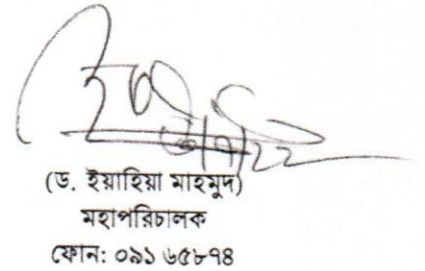 (ড. ইয়াহিয়া মাহমুদ)
মহাপরিচালক
ফোন: ০৯১ ৬৫৮৭৪